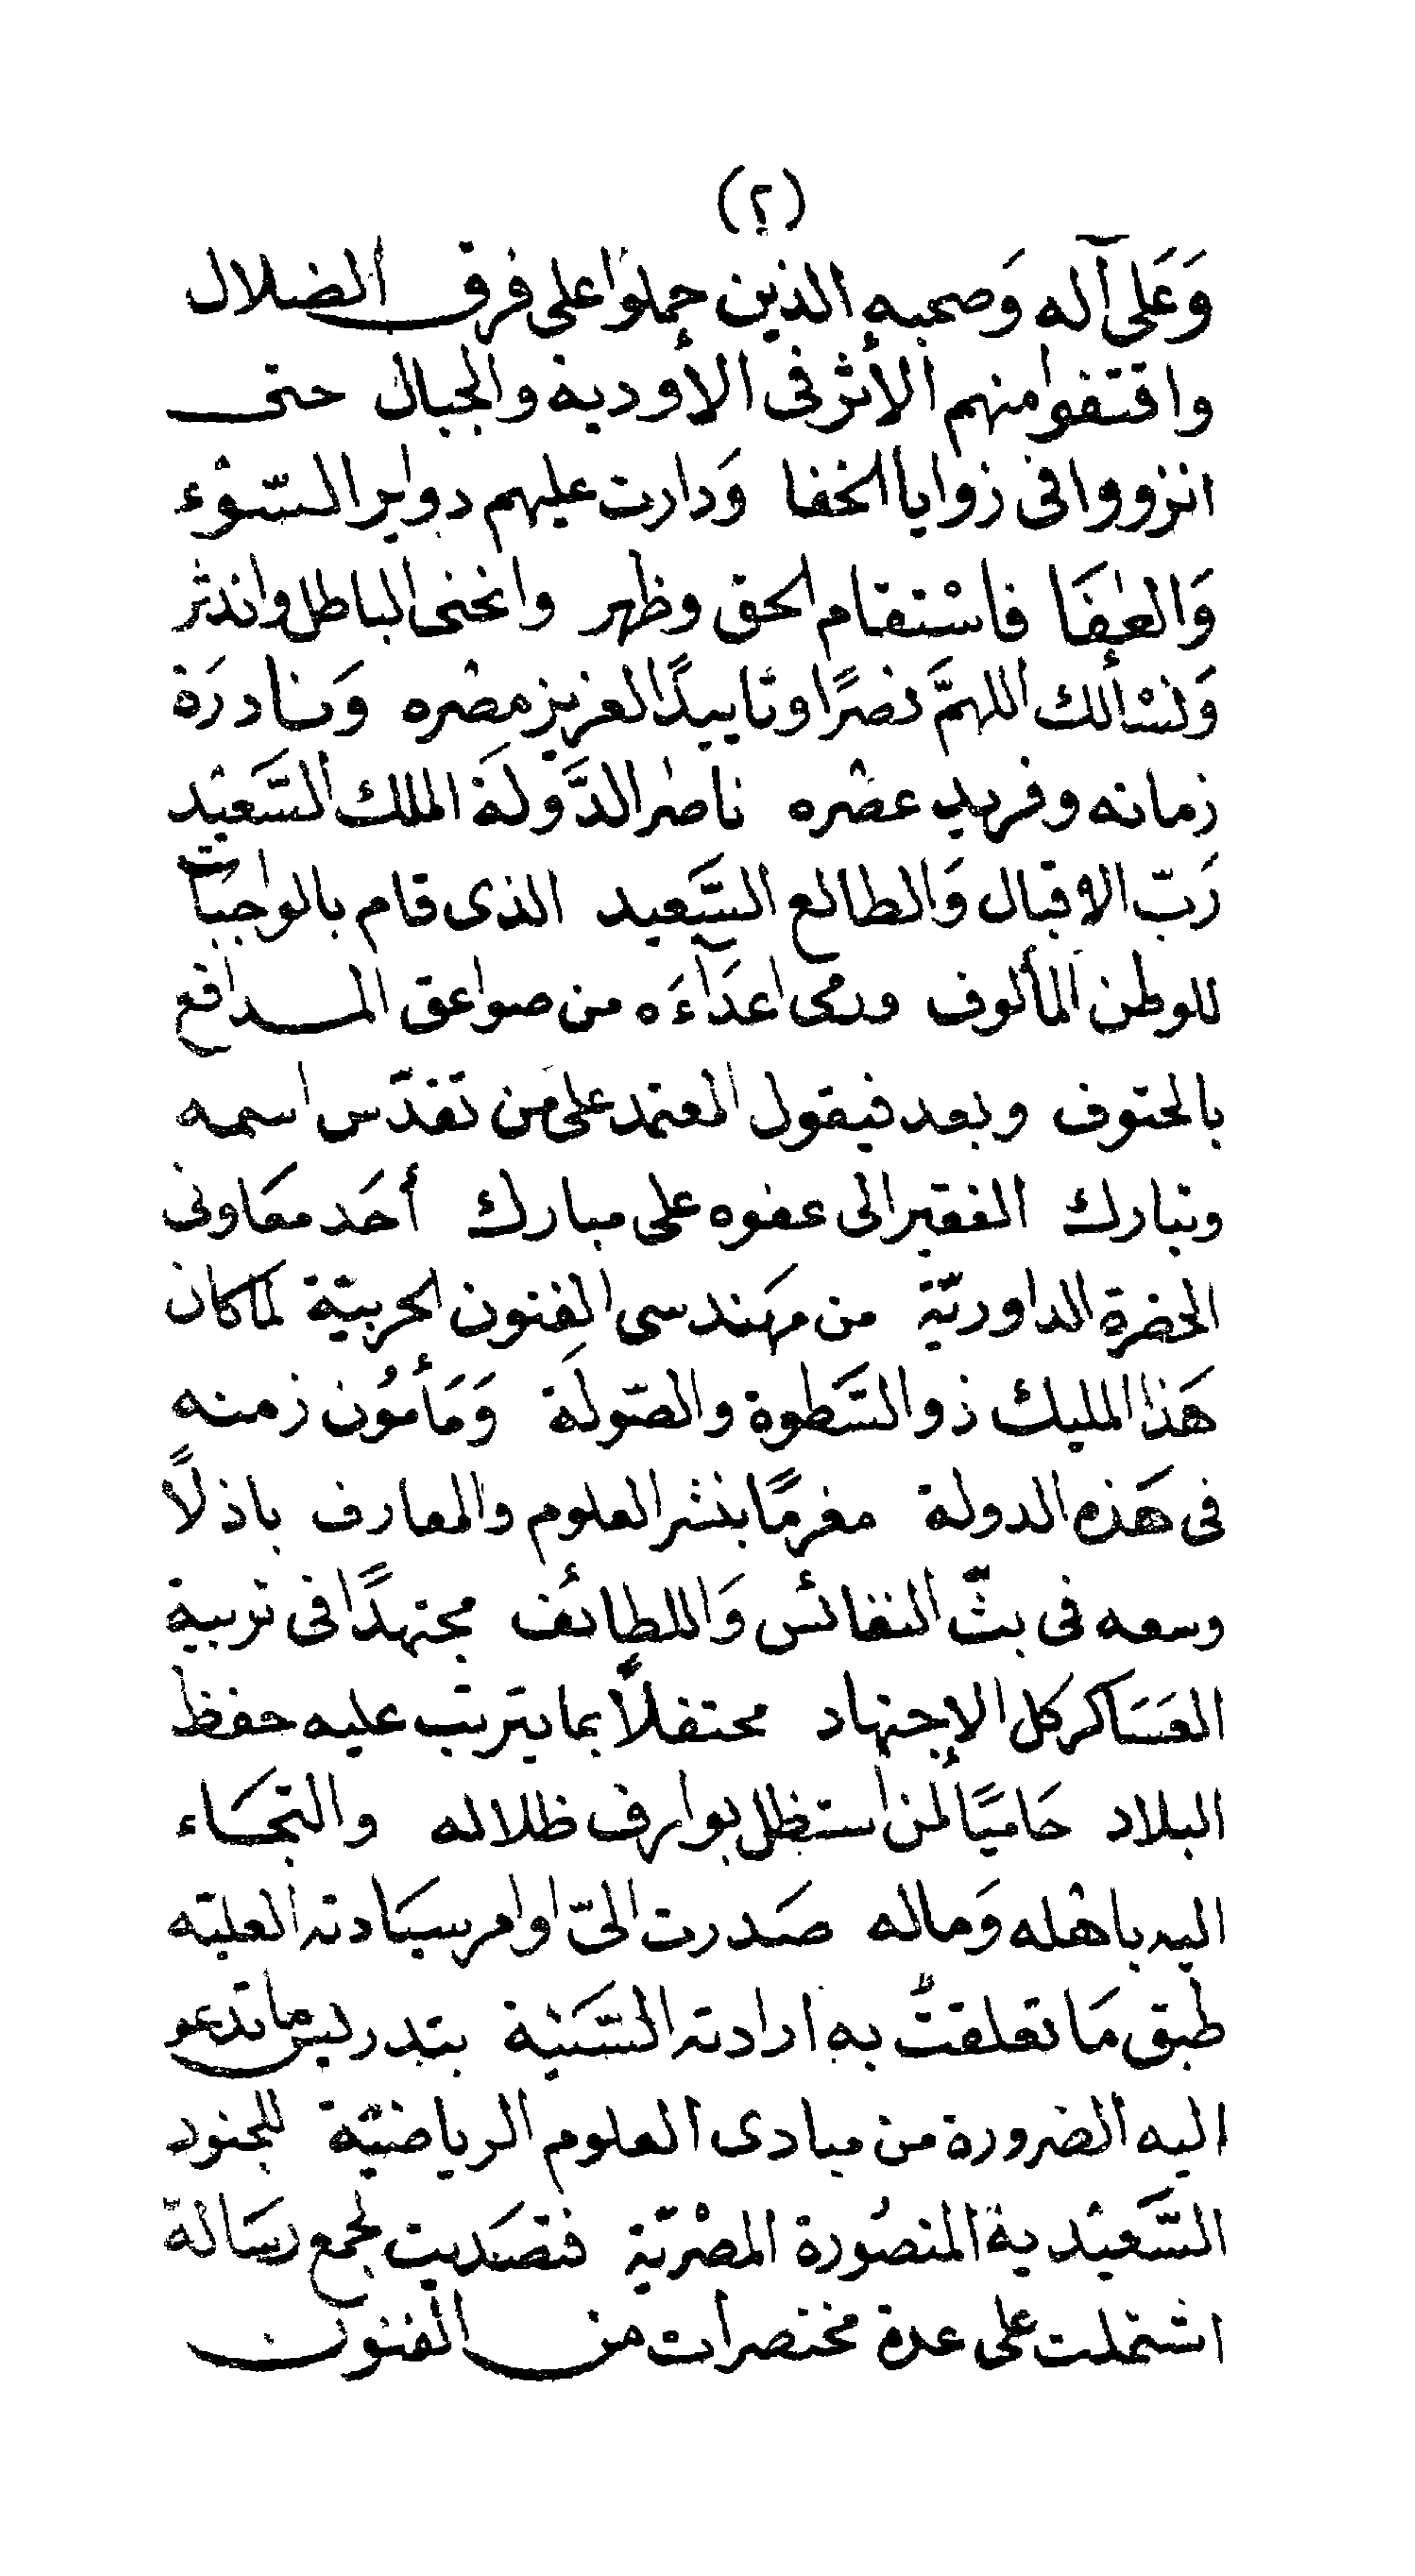 (٢)
وَعَلى آله وَصحبه الذين حملوا على فرق الضلال
واقتفوا منهم الأثر فى الأودية والجبال حتى
انزووا فى زوايا الخفا وَدارت عليهم دواير السّوْء
وَالعفَا فاسْتقام الحق وظهر وانخنى الباطل واندثر
وَنسْألك اللهمَّ نصرًا وتاييدًا لعزيز مصْره وَنادرَة
زمانه وفريد عصْره ناصر الدَّولَة الملك السَّعيْد
رَبّ الاقبال وَالطالع السَّعيد الذى قام بالواجبَات
للوطن المألوف ورمى اعدَآءَه من صواعق المدافع
بالحتوف وبعد فيقول المعتمد على مَن تقدّس اسمه
وتبارك الفقير الى عفوه على مبارك أحَد معَاونى
الحضرة الداوريّة من مهَندسى الفنون الحربيّة لما كان
هَذا المليك ذو السَّطوة والصّولَة وَمَأمُون زمنه
فى هَذه الدولة مغرمًا بنشر العلوم والمعارف باذلاً
وسعه فى بثّ النفائس وَاللطائف مجتهدًا فى تربية
العسَاكر كل الإجتهاد محتفلاً بما يترتب عليه حفظ
البلاد حَاميًا لمن استظل بوارف ظلاله والتجَاء
اليه باهْله وَماله صَدرت الىّ اوامر سيَادته العليّه
طبق مَا تعلقتْ به ارادته السَّنيْة بتدريس ما تدعو
اليه الضرورة من مبادى العلوم الرياضيّة للجنود
السَّعيْدية المنصُورة المصْريّة فتصَديت لجمع رسَالة
اشتملت على عدة مختصرات من الفنون